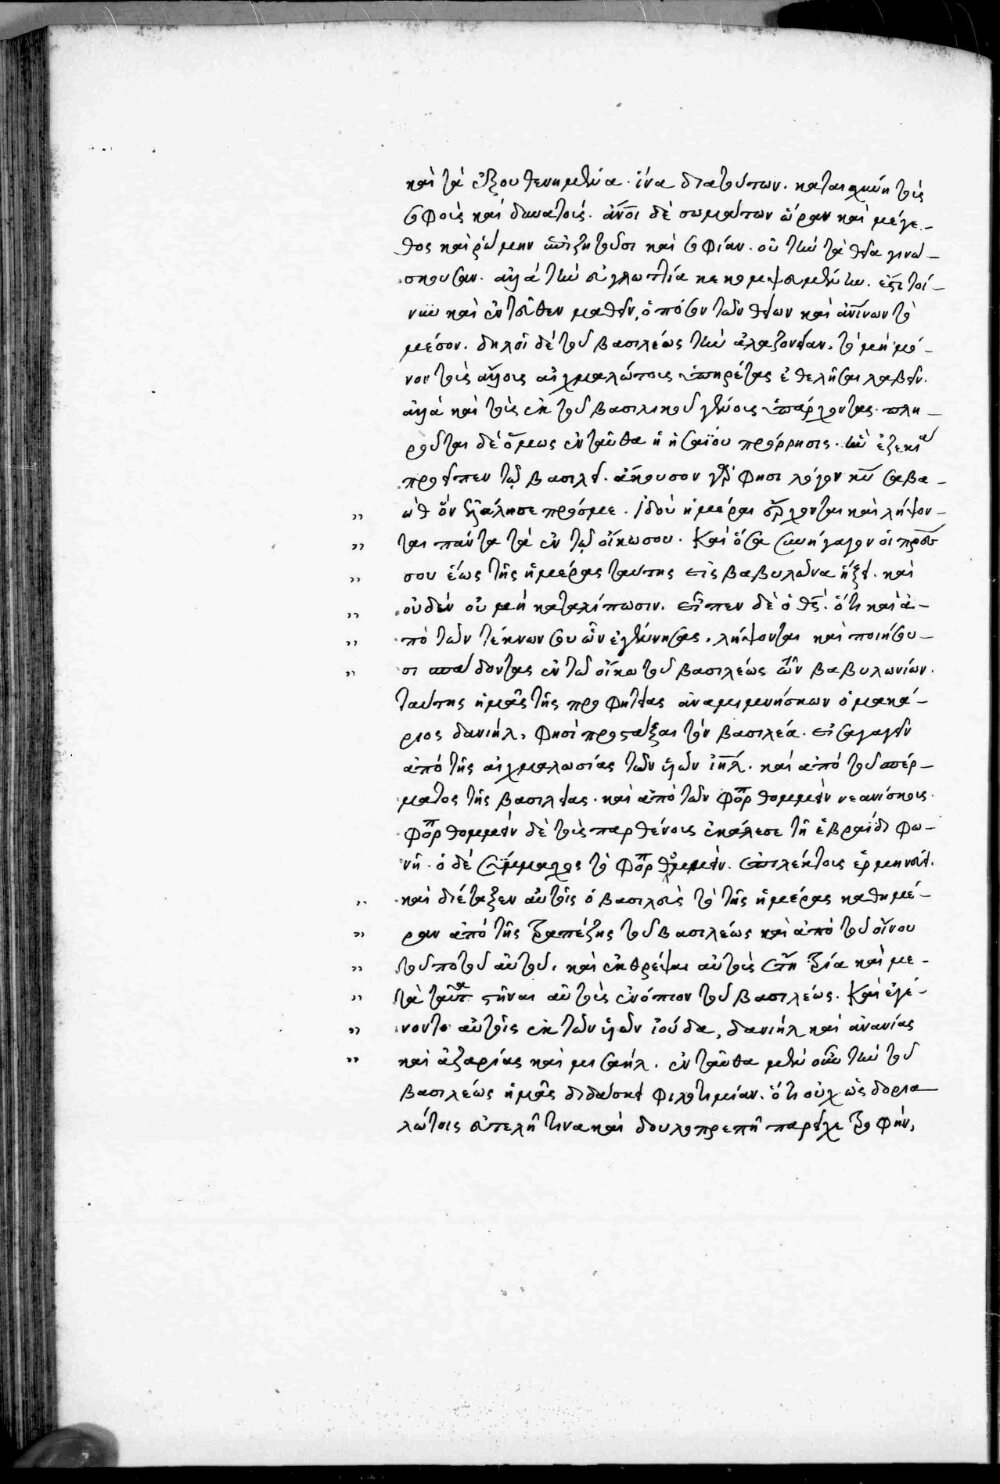 καὶ τὰ ἐξουθενημένα. ἵνα διὰ τούτων. καταισχύνη τοὺς
σοφοὺς καὶ δυνατούς. ἄνοι δὲ σωμάτων ὥραν καὶ μέγε-
θος καὶ ρώμην ἐπιζητοῦσι καὶ σοφίαν. οὐ τὴν τὰ θεῖα γινώ-
σκουσαν. ἀλλὰ τὴν εὐγλωττία κεκομψευμένην. ἔξεστι τοί-
νυν καὶ ἐντεῦθεν μαθεῖν, ὁπόσον τῶν θείων καὶ ἀνίνων τὸ
μέσον. δηλοῖ δὲ τοῦ βασιλέως τὴν ἀλαζονείαν. τὸ μὴ μό-
νον τοὺς ἄλλους αἰχμαλώτους ὑπηρέτας ἐθελῆσαι λαβεῖν.
ἀλλὰ καὶ τοὺς ἐκ τοῦ βασιλικοῦ γένους ὑπάρχοντας. πλη-
ροῦται δὲ ὅμως ἐνταῦθα ἡ ἡσαΐου πρόρρησις. ἣν ἐζεκία
προεῖπεν τῷ βασιλεῖ. ἄκουσον γάρ φησι λόγον κυ σαβα-
ὼθ ὃν ἐλάλησε πρόσμε. ἰδοὺ ἡμέραι ἔρχονται καὶ λήψον-
ται πάντα τὰ ἐν τῷ οἴκω σου. καὶ ὅσα συνήγαγον οἱ προς
σου ἕως τῆς ἡμέρας ταύτης εἰς βαβυλῶνα ἥξει. καὶ
οὐδὲν οὐ μὴ καταλίπωσιν. εἶπεν δὲ ὁ θς. ὅτι καὶ ἀ-
πὸ τῶν τέκνων σου ὧν ἐγέννησας. λήψονται καὶ ποιήσου-
σι σπάδοντας ἐν τῶ οἴκω τοῦ βασιλέως τῶν βαβυλωνίων.
ταύτης ἡμᾶς τῆς προφητείας ἀναμιμνήσκων ὁ μακά-
ριος δανιήλ, φησὶ προστάξαι τὸν βασιλέα. εἰσαγαγεῖν
ἀπὸ τῆς αἰχμαλωσίας τῶν υἱῶν ιηλ. καὶ ἀπὸ τοῦ σπέρ-
ματος τῆς βασιλείας. καὶ ἀπὸ τῶν φορθομμεὶν νεανίσκους.
φορθομμεὶν δὲ τοὺς παρθένους ἐκάλεσε τῆ ἑβραΐδι φω-
νῆ. ὁ δὲ σύμμαχος τὸ φορθομμεὶν. ἐπιλέκτους ἑρμηνεύει.
καὶ διέταξεν αὐτοῖς ὁ βασιλεὺς τὸ τῆς ἡμέρας καθημέ-
ραν ἀπὸ τῆς τραπέζης τοῦ βασιλέως καὶ ἀπὸ τοῦ οἴνου
τοῦ ποτοῦ αὐτοῦ. καὶ ἐκθρέψαι αὐτοὺς ἔτη τρία καὶ με-
τὰ ταῦτα στῆναι αὐτοὺς ἐνόπιον τοῦ βασιλέως. καὶ ἐγέ-
νοντο αὐτοῖς ἐκ τῶν υἱῶν ἰούδα, δανιὴλ καὶ ἀνανίας
καὶ ἀζαρίας καὶ μισαήλ. ἐνταῦθα μὲν οὖν τὴν τοῦ
βασιλέως ἡμᾶς διδάσκει φιλοτιμίαν. ὅτι οὐχ ὡς δορια-
λώτοις εὐτελῆ τινα καὶ δουλοπρεπῆ παρεῖχε τροφήν,